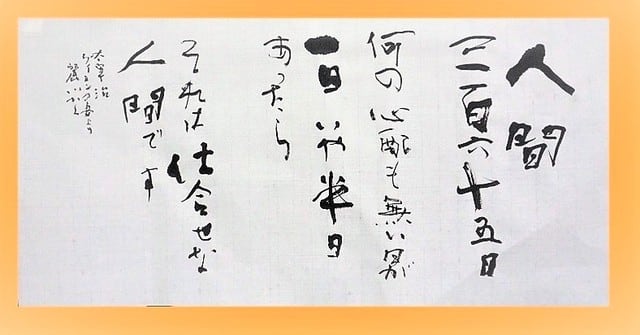 人間
三百六十五日
何の心配も無い日が
一日いや半日
あったら
それは仕合せな
人間です
太宰治
ヴィヨンの妻より